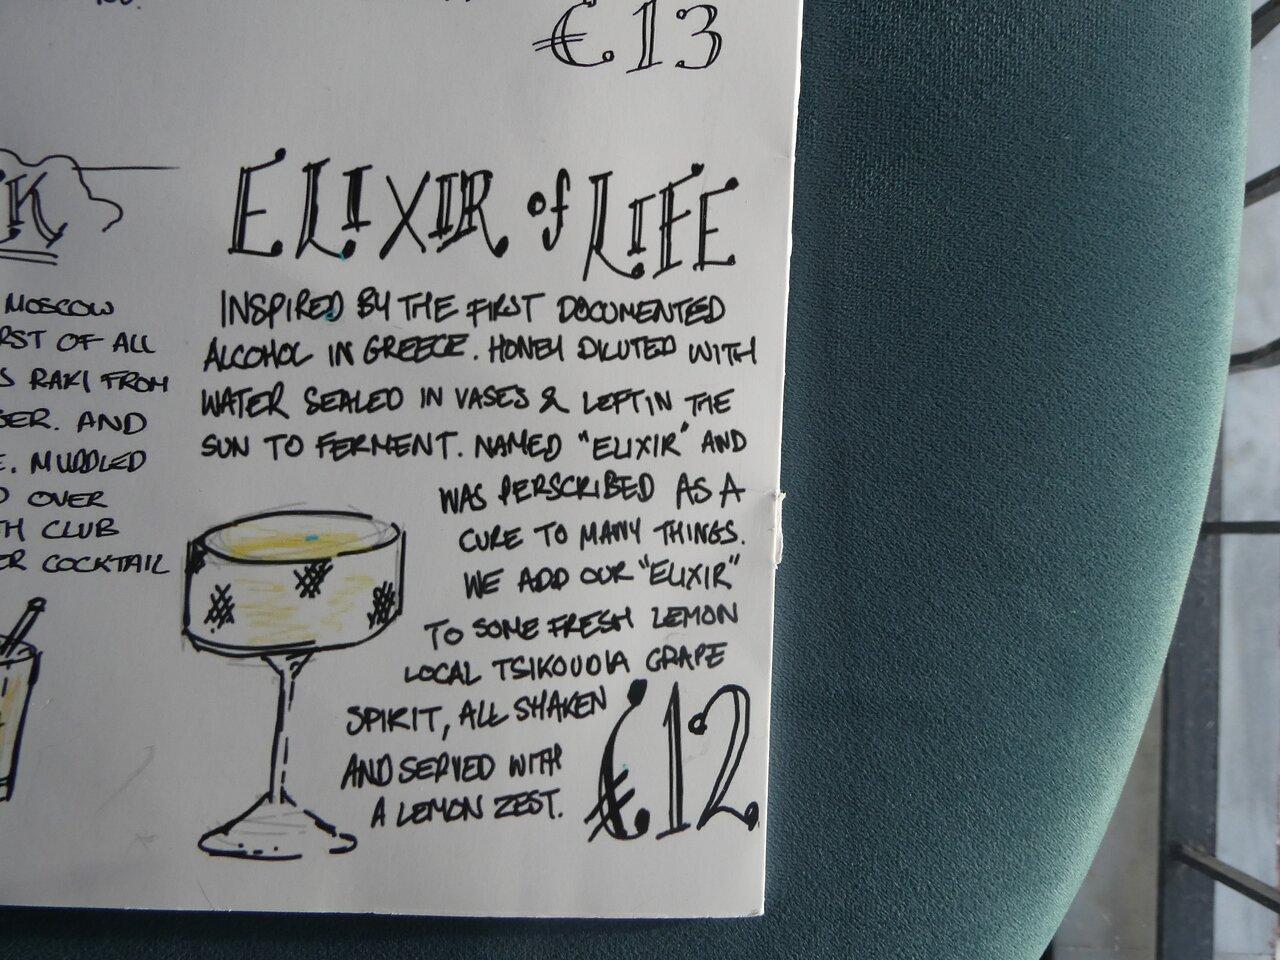 €13
ELIXIR of LIFE
INSPIRED BY THE FIRST DOCUMENTED
ALCOHOL IN GREECE. HONEY DILUTED WITH
WATER SEALED IN VASES & LEFT IN THE
SUN TO FERMENT. NAMED "ELIXIR" AND
WAS PERSCRIBED AS A
CURE TO MANY THINGS.
WE ADD OUR "ELIXIR"
TO SOME FRESH LEMON
LOCAL TSIKOUDIA GRAPE
SPIRIT, ALL SHAKEN
AND SERVED WITH
A LEMON ZEST.
€12
K
MOSCOW
RST OF ALL
S RAKI FROM
GER. AND
E. MUDDLED
D OVER
TH CLUB
ER COCKTAIL